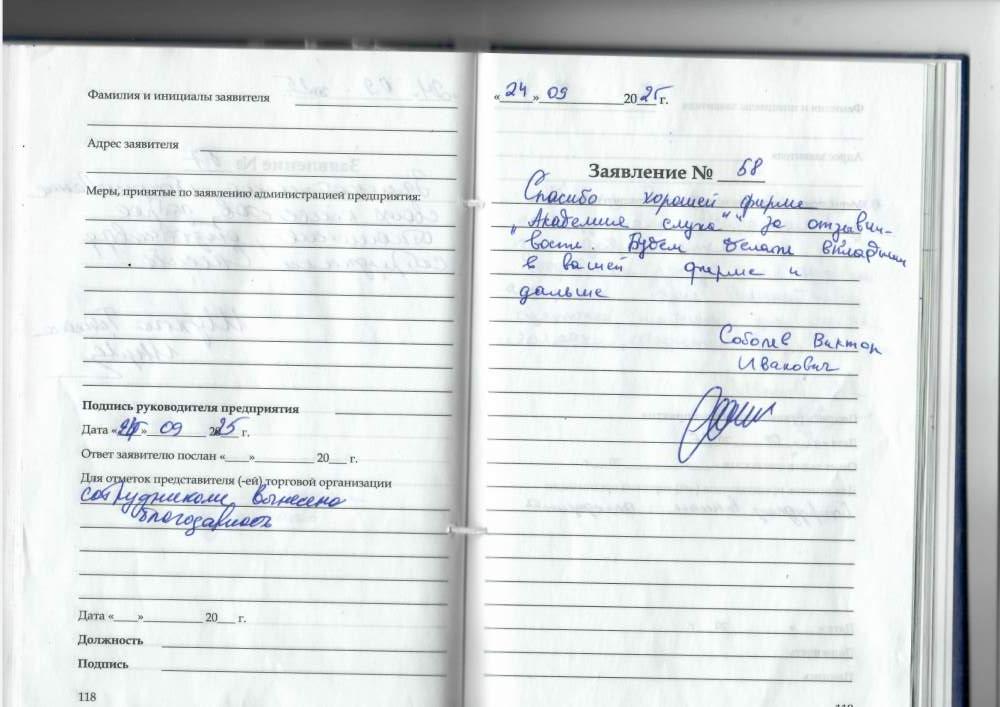 Фамилия и инициалы заявителя
Адрес заявителя
Меры, принятые по заявлению администрацией предприятия:
Подпись руководителя предприятия
Дата « » 09 2025 г.
Ответ заявителю послан «___»__________ 20___ г.
Для отметок представителя (-ей) торговой организации
сотрудникам вынесена
благодарность
Дата «___»__________ 20___ г.
Должность
Подпись
118
«24» 09 2025 г.
Заявление № 68
Спасибо хорошей фирме
„Академия слуха“ за отзывчи-
вость. Будем делать вкладыши
в вашей фирме и
дальше
Соболев Виктор
Иванович